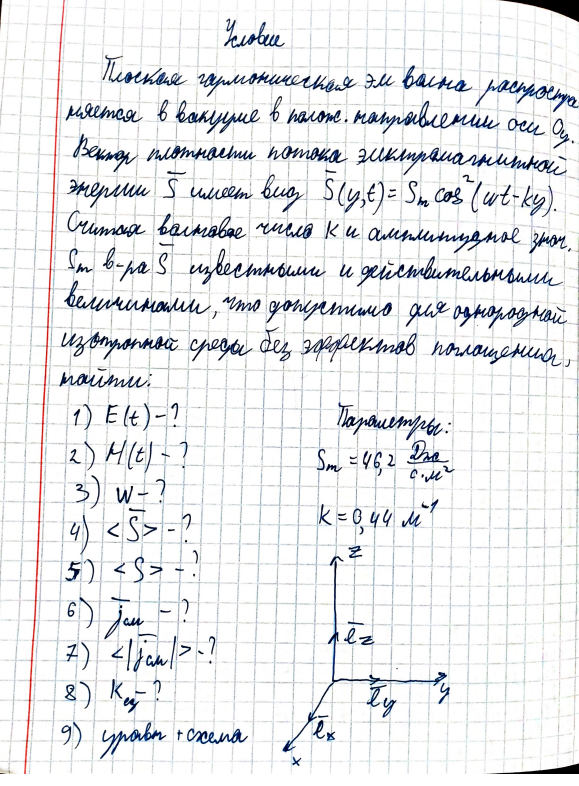 Условие
Плоская гармоническая эм волна распростра
няется в вакууме в полож. направлении оси Oy.
Вектор плотности потока электромагнитной
энергии S̄ имеет вид S̄(y,t) = Sm cos²(wt-ky).
Считая волновое число K и амплитудное знач.
Sm в-ра S̄ известными и действительными
величинами, что допустимо для однородной
изотропной среды без эффектов поглощения,
найти:
1) E(t) -?
2) H(t) -?
3) w -?
4) <S̄> -?
5) <S> -?
6) j̄см -?
7) <|j̄см|> -?
8) Kед -?
9) уравн + схема
Параметры:
Sm = 46,2 Дж/с·м²
K = 0,44 м⁻¹
z
ēz
ēy
y
ēx
x